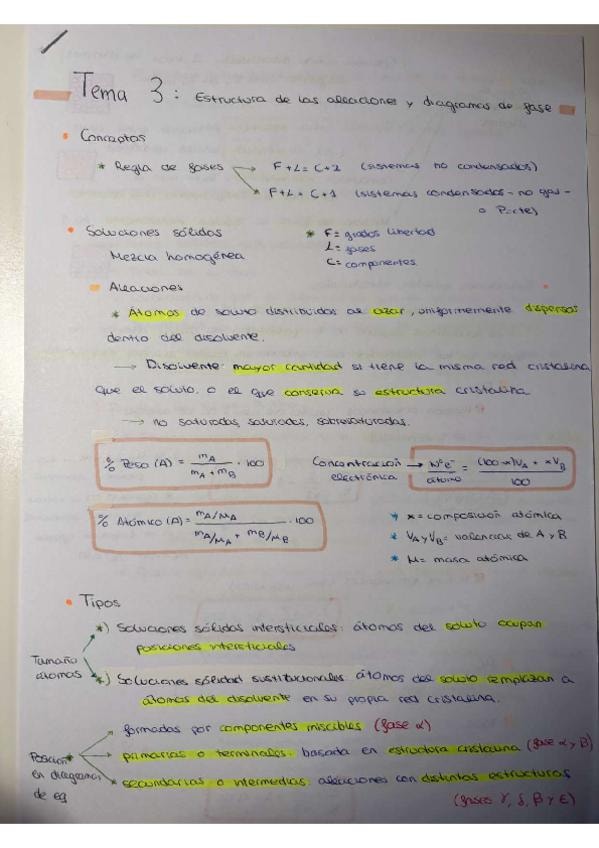 Tema 3: Estructura de las aleaciones y diagramas de fase
• Conceptos
* Regla de fases → F + L = C + 2 (sistemas no condensados)
→ * F + L = C + 1 (sistemas condensados - no gas -
o P=cte)
• Soluciones sólidas * F = grados libertad
Mezcla homogénea L = fases
C = componentes
Aleaciones
* Átomos de soluto distribuidos al azar, uniformemente dispersos
dentro del disolvente.
→ Disolvente: mayor cantidad si tiene la misma red cristalina
que el soluto. o el que conserva su estructura cristalina
→ no saturadas, saturadas, sobresaturadas.
% Peso (A) = mA / (mA + mB) · 100 Concentración electrónica → Nº e⁻ / átomo = ((100-x)VA + xVB) / 100
% Atómico (A) = (mA/MA) / (mA/MA + mB/MB) · 100
* x = composición atómica
* VA y VB = valencias de A y B
* M = masa atómica
• Tipos
*) Soluciones sólidas intersticiales: átomos del soluto ocupan
posiciones intersticiales
Tamaño átomos
*) Soluciones sólidad sustitucionales: átomos del soluto remplazan a
átomos del disolvente en su propia red cristalina.
formadas por componentes miscibles (fase α)
Posición en diagramas de eq
* primarias o terminales: basada en estructura cristalina (fase α y β)
* secundarias o intermedias: aleaciones con distintas estructuras
(fases γ, δ, β y ε)